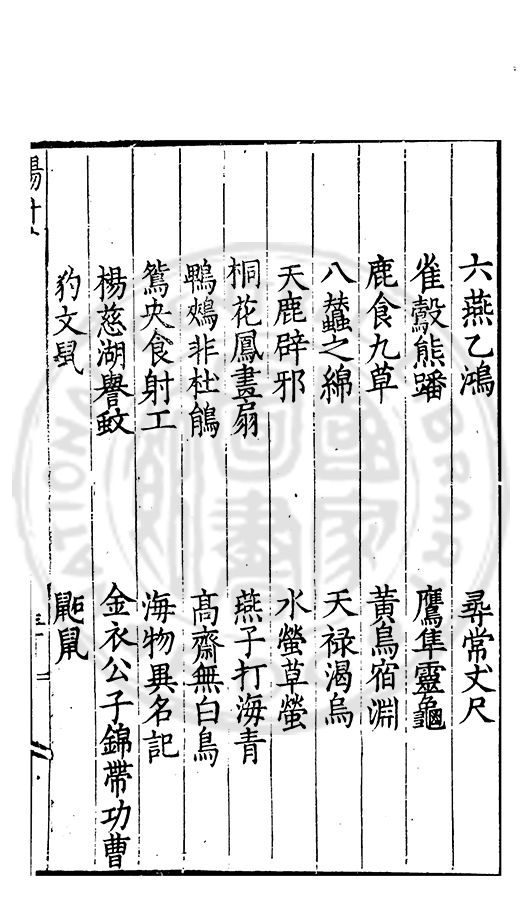 六燕乙鴻
尋常丈尺
雀鷇熊蹯
鷹隼靈龜
鹿食九草
黃鳥宿淵
八蠶之綿
天祿渴烏
天鹿辟邪
水螢草螢
桐花鳳畫扇
燕子打海青
鴨鵁非杜鵑
高齋無白鳥
鴛央食射工
海物異名記
楊慈湖譽蚊
金衣公子錦帶功曹
豹文鼠
鼫鼠